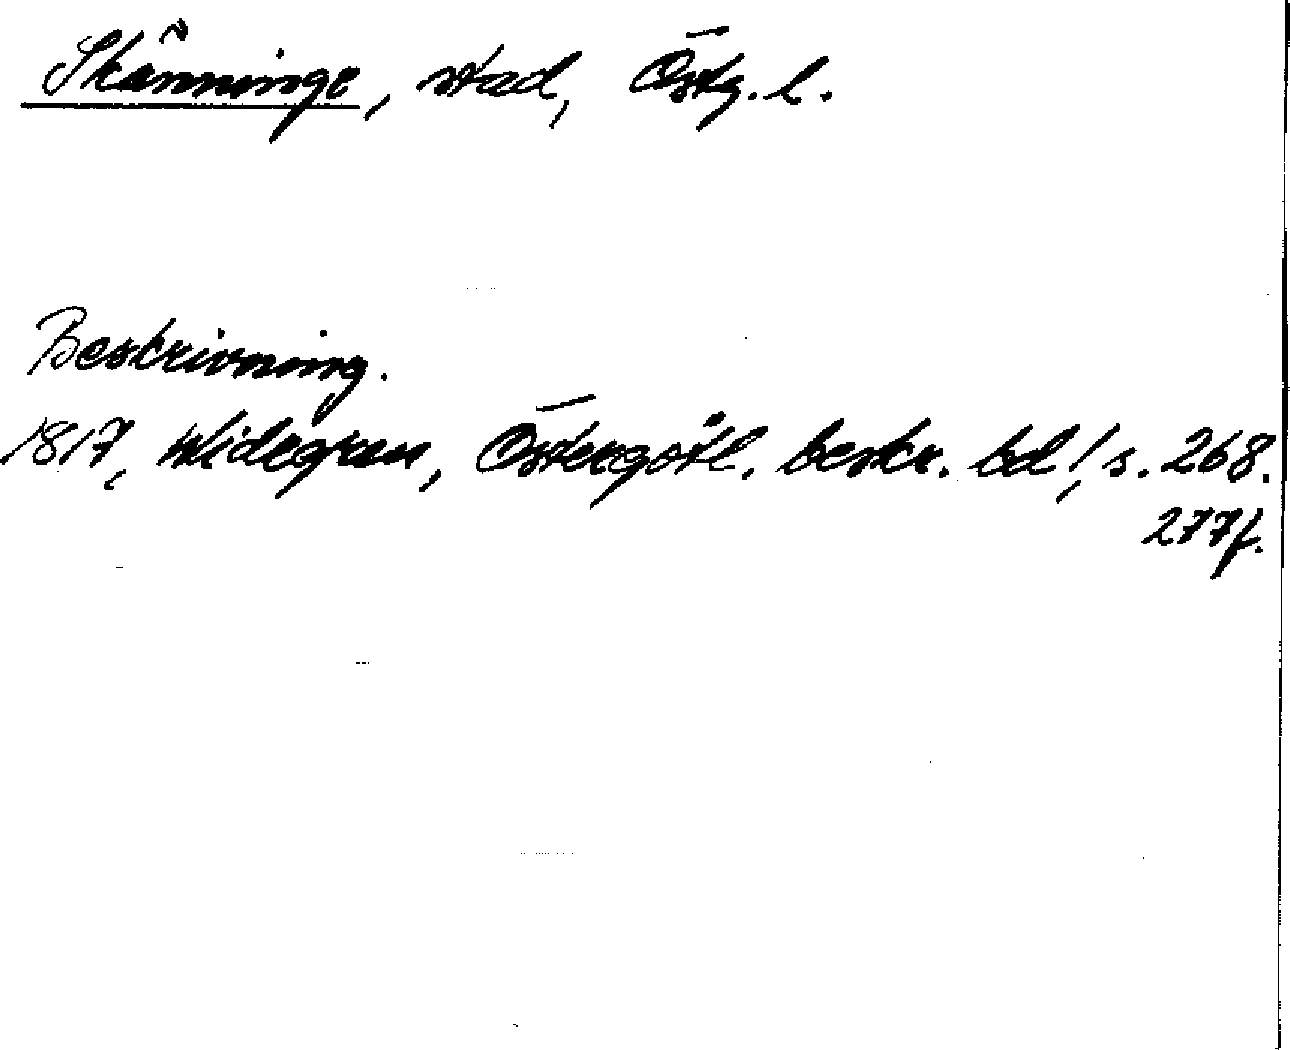 Skänninge, stad, Östg. l.
Beskrivning.
1817, Widegren, Östergötl. beskr. bd 1, s. 268.
277f.